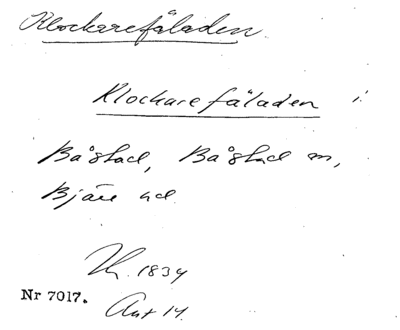 Klockarefäladen
Klockarefäladen i
Båstad, Båstad sn,
Bjäre hd
Th. 1834
Nr 7017.
Akt 14